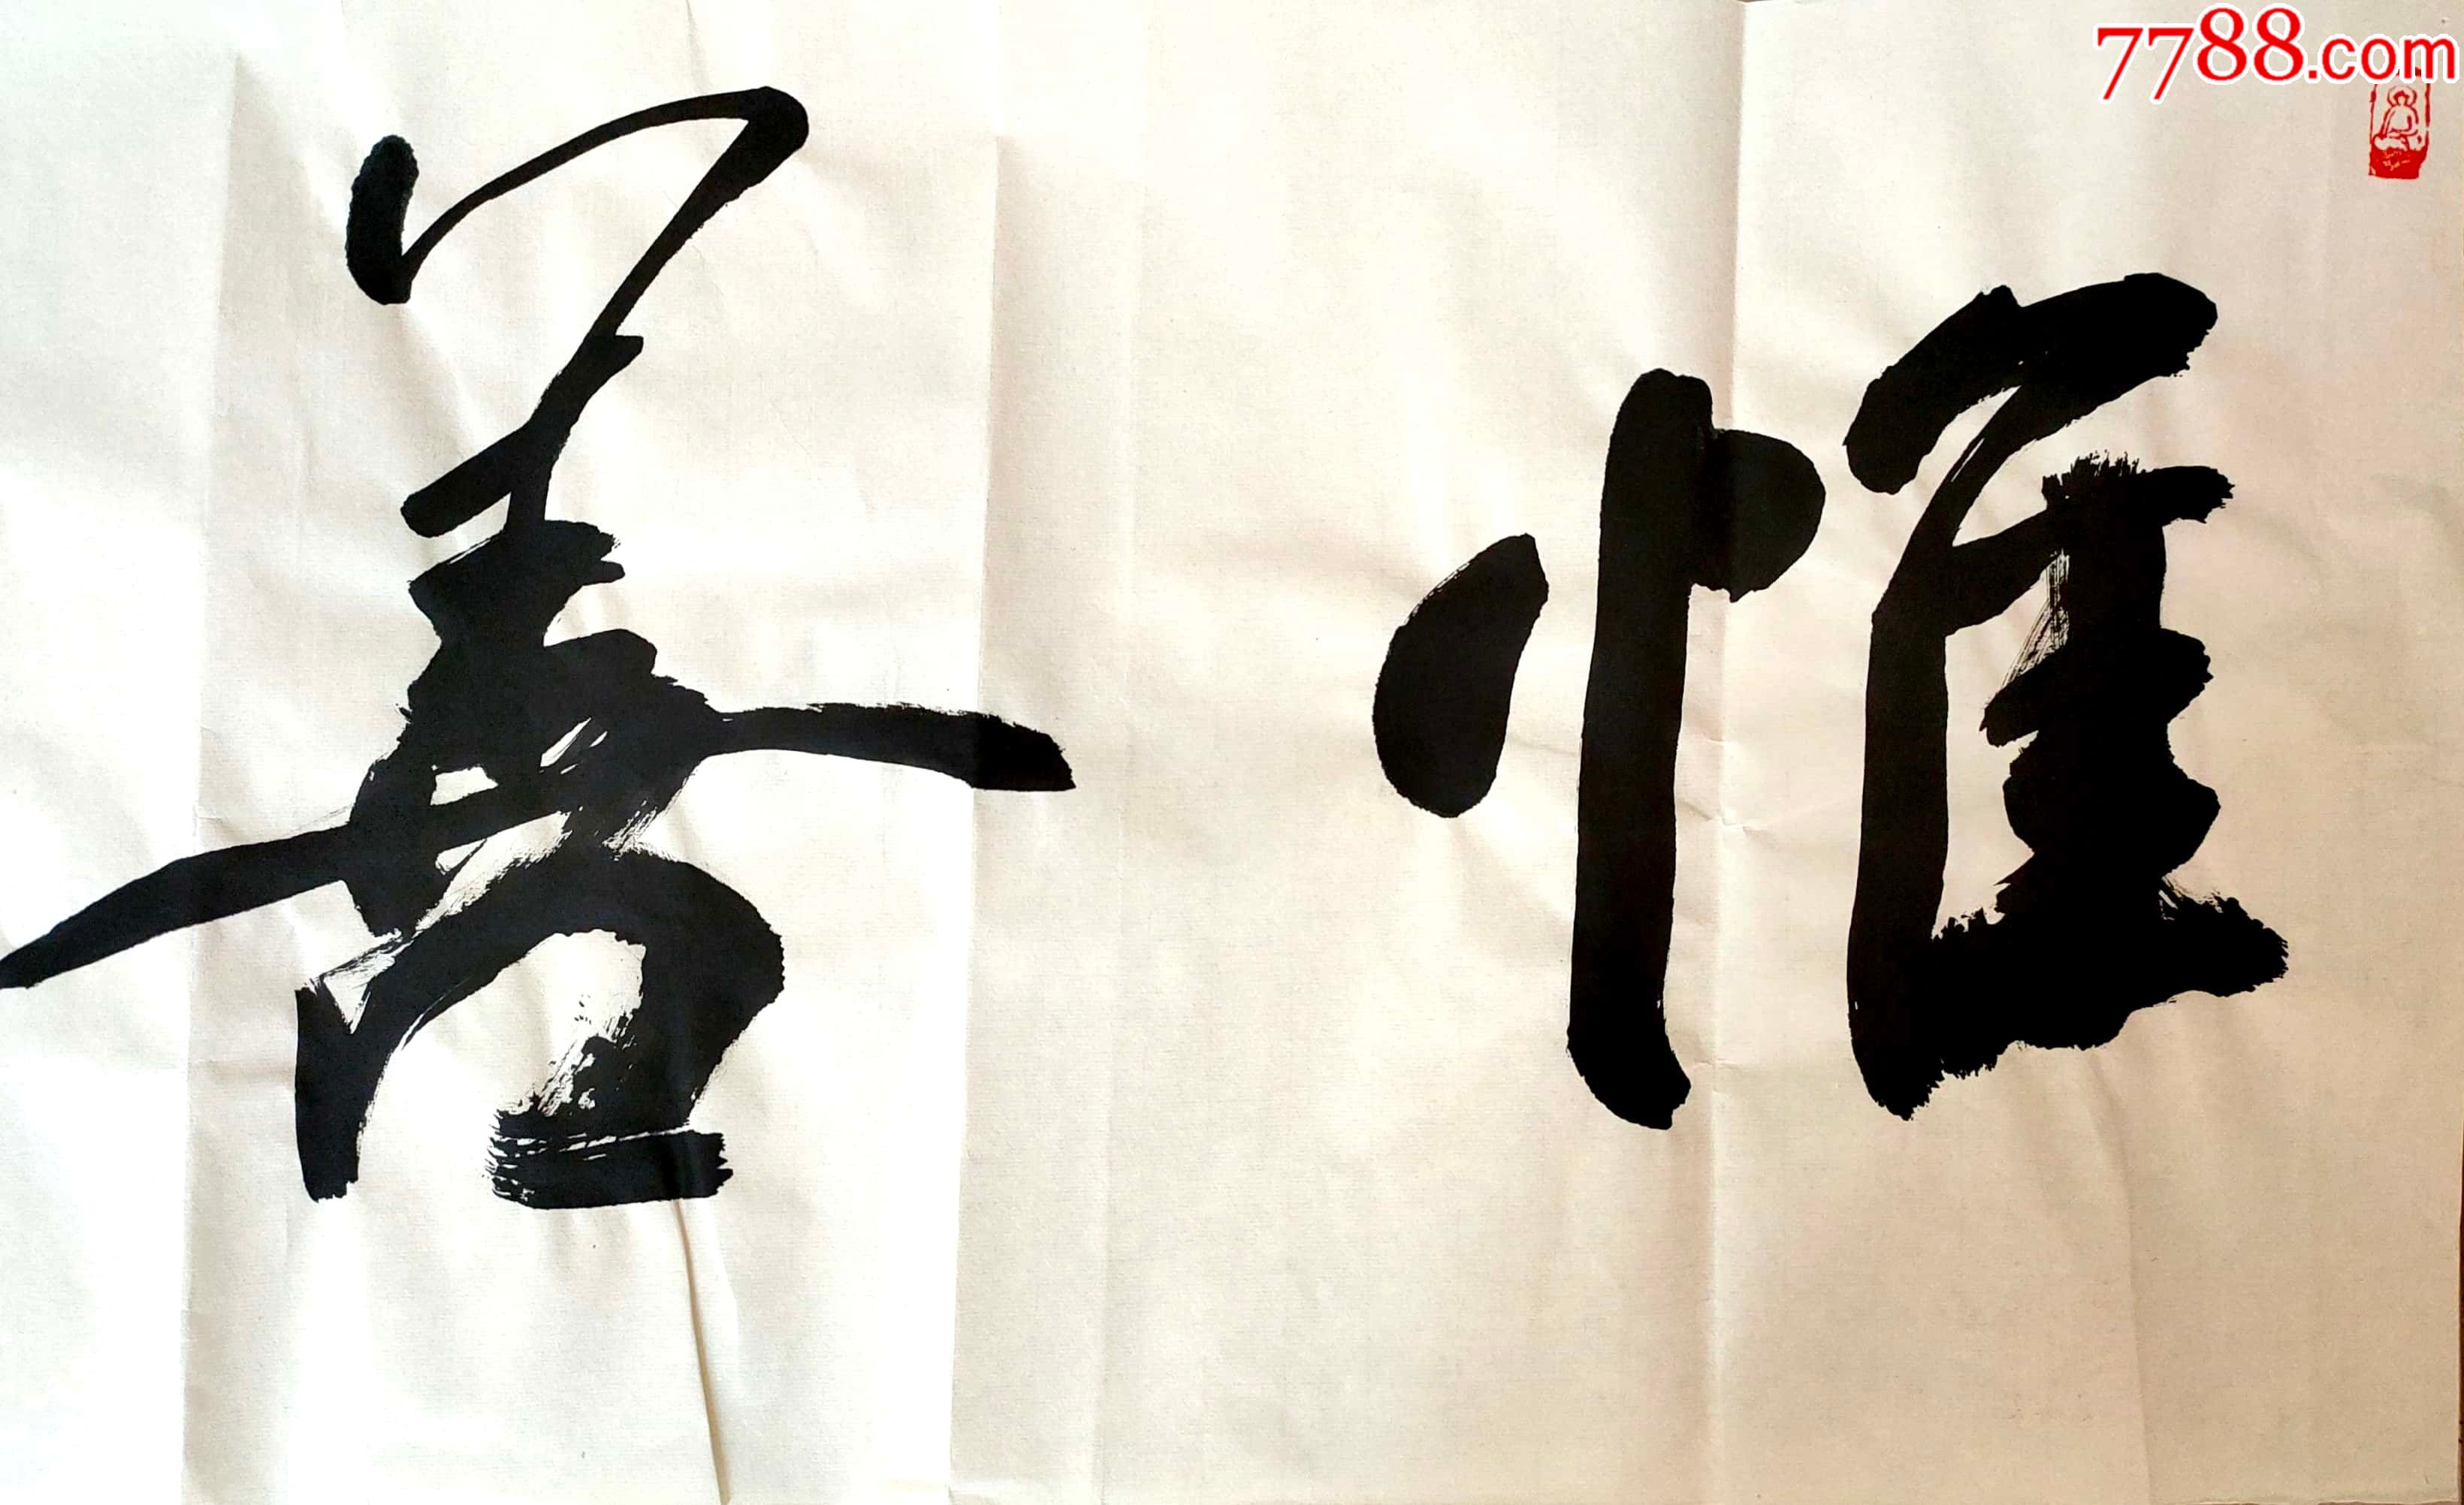 惟善
7788.com